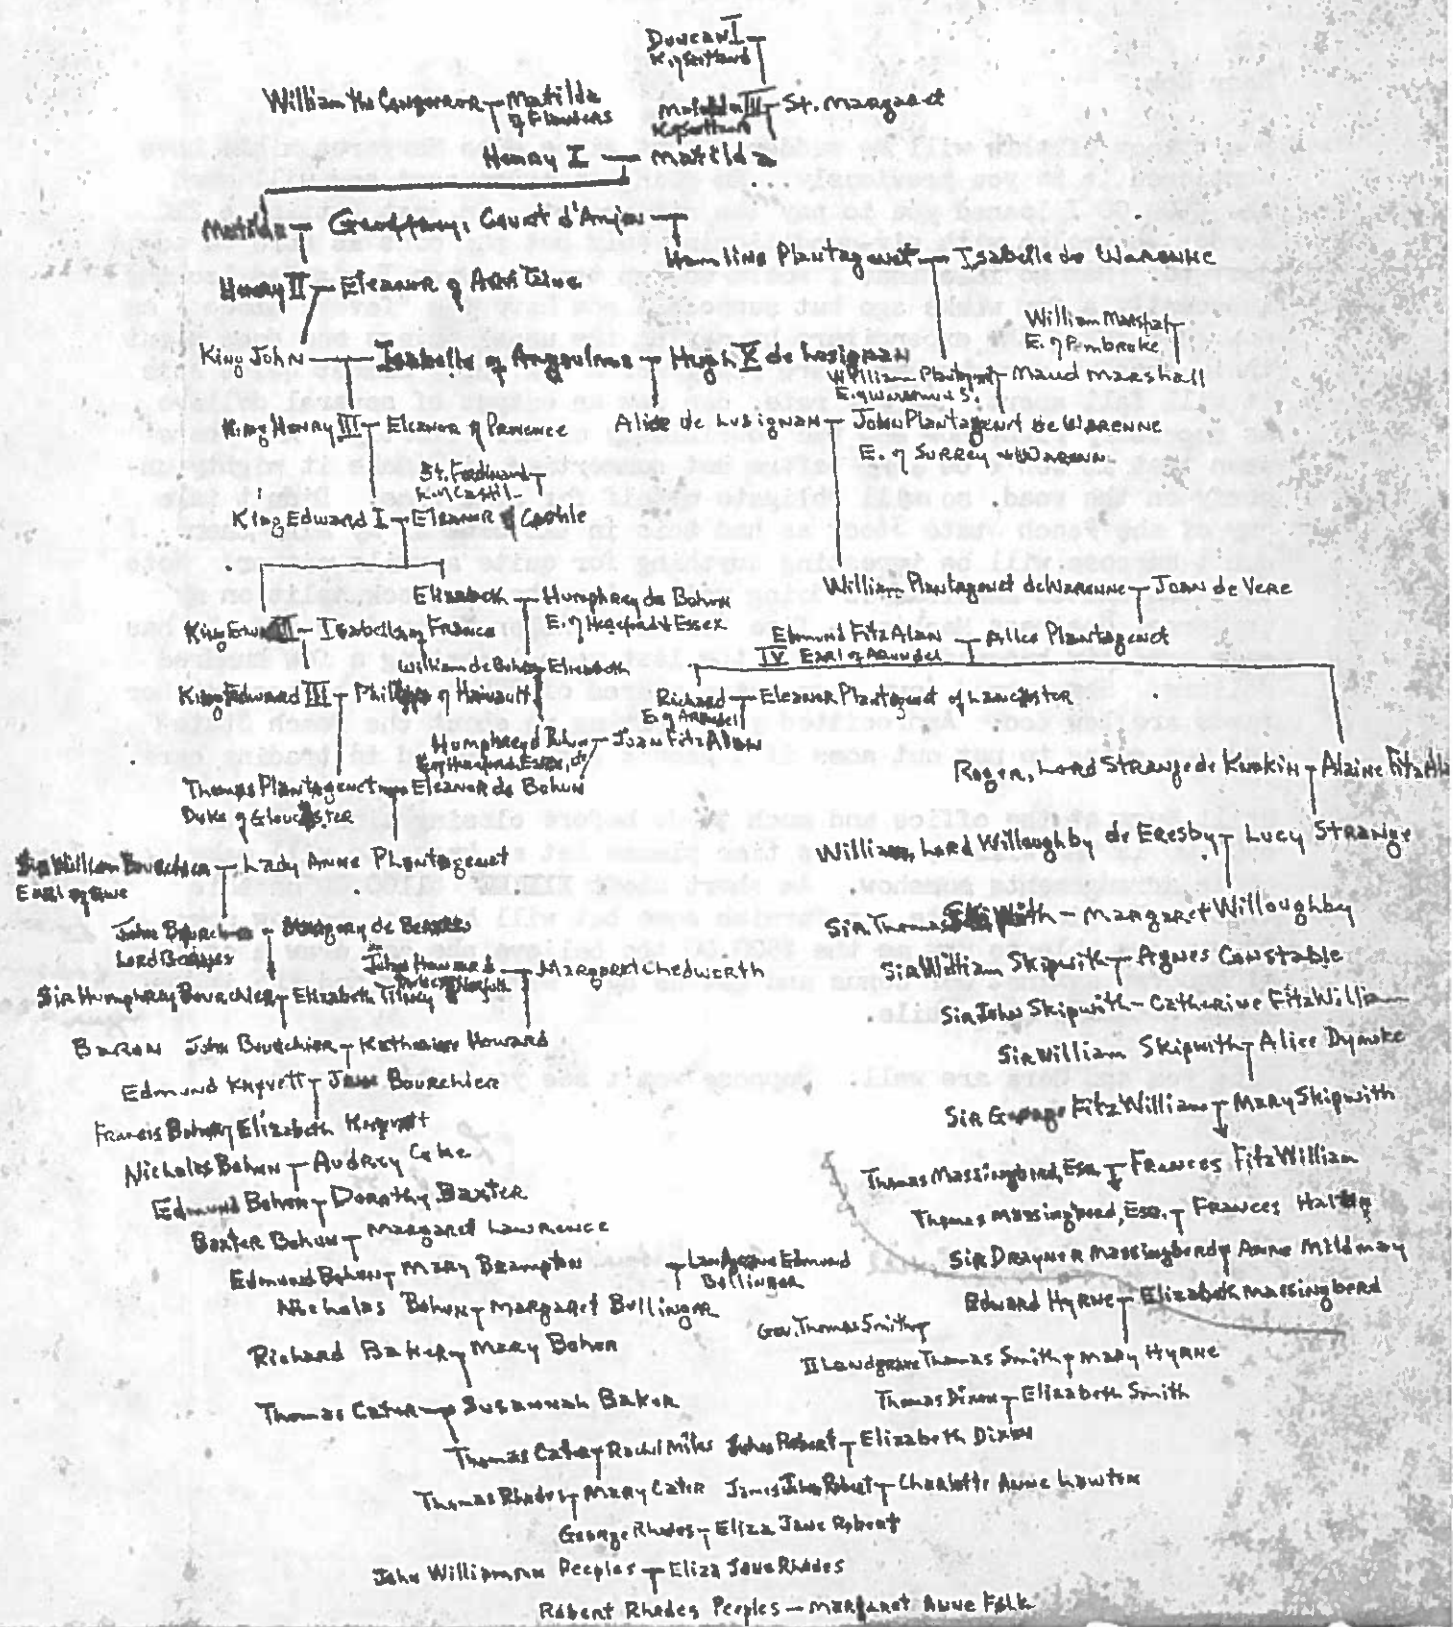 Duncan I
K. of Scotland
William the Conqueror - Matilda
of Flanders
Malcolm III - St. Margaret
K of Scotland
Henry I - Matilda
Matilda - Geoffrey, Count d'Anjou
Hamline Plantagenet - Isabelle de Warenne
Henry II - Eleanor of Aquitaine
William Marshal
E. of Pembroke
King John - Isabelle of Angouleme - Hugh X de Lusignan
William Plantagenet - Maud Marshall
E. of Warenne & S.
King Henry III - Eleanor of Provence
Alice de Lusignan - John Plantagenet de Warenne
E. of Surrey & Warenn
St. Ferdinand
K. of Castil
King Edward I - Eleanor of Castile
William Plantagenet de Warenne - Joan de Vere
Elizabeth - Humphrey de Bohun
E. of Hereford & Essex
King Edward II - Isabella of France
Edmund FitzAlan - Alice Plantagenet
IV Earl of Arundel
William de Bohun - Elizabeth
King Edward III - Philippa of Hainault
Richard - Eleanor Plantagenet of Lancaster
E. of Arundel
Humphrey d Bohun - Joan FitzAlan
E. of Hereford Essex, &c
Roger, Lord Strange de Knokin - Alaine FitzAla
Thomas Plantagenet - Eleanor de Bohun
Duke of Gloucester
William, Lord Willoughby de Eresby - Lucy Strange
Sir William Bourchier - Lady Anne Plantagenet
Earl of Ewe
Sir Thomas Skipwith - Margaret Willoughby
John Bourchier - Margery de Berners
Lord Berners
John Howard - Margaret Chedworth
Duke of Norfolk
Sir William Skipwith - Agnes Constable
Sir Humphrey Bourchier - Elizabeth Tilney
Sir John Skipwith - Catharine FitzWilliam
Baron John Bourchier - Katharine Howard
Sir William Skipwith - Alice Dymoke
Edmund Knyvett - Jane Bourchier
Sir George FitzWilliam - Mary Skipwith
Francis Bohun - Elizabeth Knyvett
Nicholas Bohun - Audrey Coke
Thomas Massingberd, Esq. - Frances FitzWilliam
Edmund Bohun - Dorothy Baxter
Thomas Massingberd, Esq. - Frances
Baxter Bohun - Margaret Lawrence
Sir Drayner Massingberd - Anne Mildmay
Edmund Bohun - Mary Brampton
Landgrave Edmund
Bellinger
Edward Hyrne - Elizabeth Massingberd
Nicholas Bohun - Margaret Bellinger
Gov. Thomas Smith
Richard Baker - Mary Bohun
II Landgrave Thomas Smith - Mary Hyrne
Thomas Cater - Susannah Baker
Thomas Dixon - Elizabeth Smith
Thomas Cater - Rachel Miles
John Robert - Elizabeth Dixon
Thomas Rhodes - Mary Cater
James John Robert - Charlotte Anne Lawton
George Rhodes - Eliza Jane Robert
John Williamson Peeples - Eliza Jane Rhodes
Robert Rhodes Peeples - Margaret Anne Folk